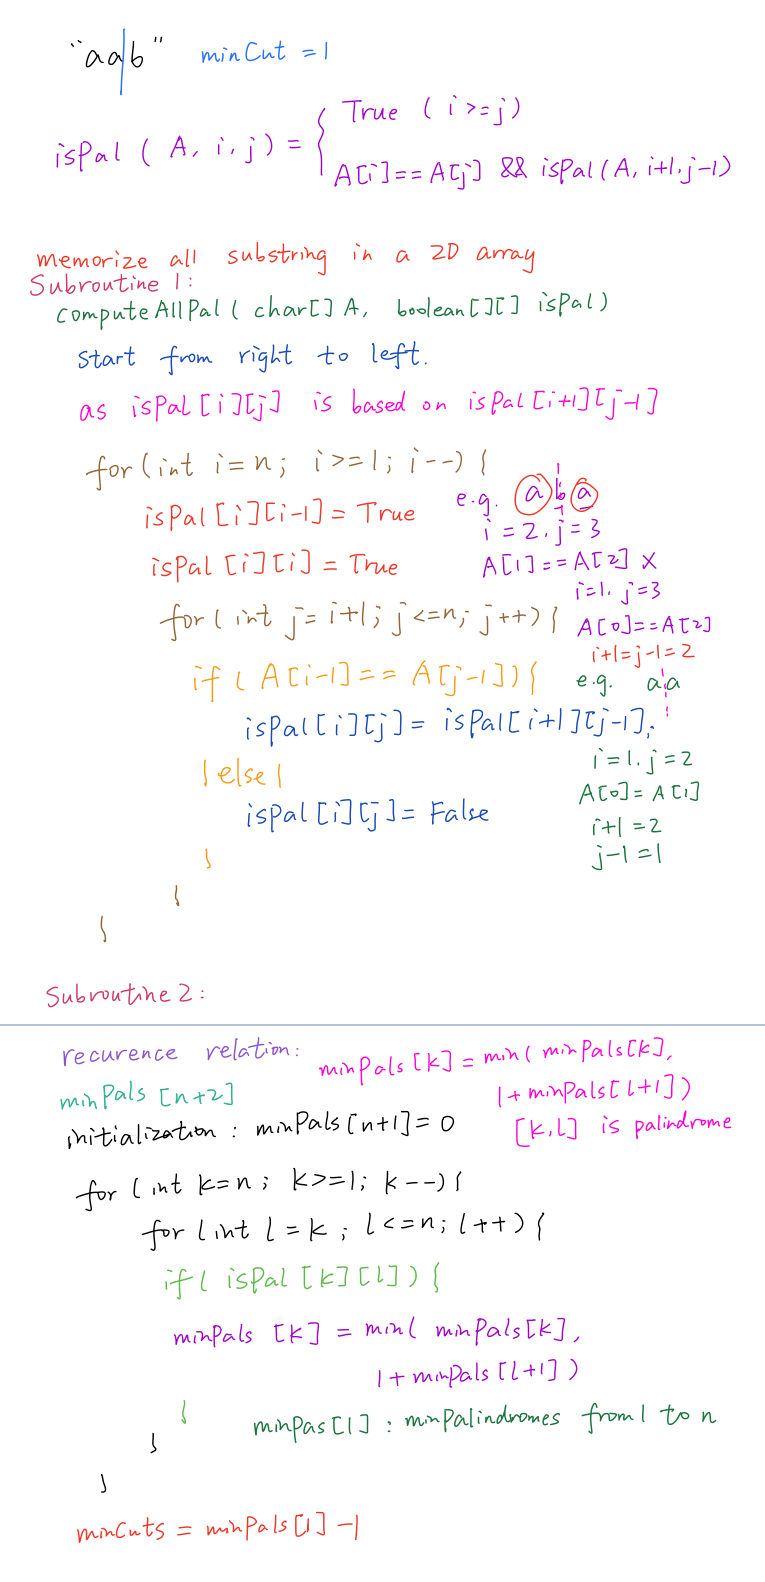 "aa|b" minCut = 1
isPal ( A, i, j ) = { True ( i >= j )
A[i] == A[j] && isPal(A, i+1, j-1)
memorize all substring in a 2D array
Subroutine 1:
compute AllPal ( char[] A, boolean[][] isPal )
Start from right to left.
as isPal [i][j] is based on isPal [i+1][j-1]
for (int i = n; i >= 1; i--) {
isPal [i][i-1] = True
isPal [i][i] = True
for ( int j = i+1; j <= n; j++) {
if ( A[i-1] == A[j-1]) {
isPal [i][j] = isPal[i+1][j-1];
} else {
isPal [i][j] = False
}
}
}
e.g. a b a
i = 2. j = 3
A[1] == A[2] X
i=1. j=3
A[0] == A[2]
i+1 = j-1 = 2
e.g. a a
i = 1. j = 2
A[0] = A[1]
i+1 = 2
j-1 = 1
Subroutine 2:
recurence relation:
minPals [k] = min( minPals[k],
1 + minPals[l+1])
[k,l] is palindrome
minPals [n+2]
initialization : minPals [n+1] = 0
for ( int k = n ; k >= 1; k--) {
for ( int l = k ; l <= n; l++) {
if ( isPal [k][l]) {
minPals [k] = min( minPals[k],
1 + minPals [l+1] )
}
minPas[1] : minPalindromes from 1 to n
}
}
minCuts = minPals[1] - 1